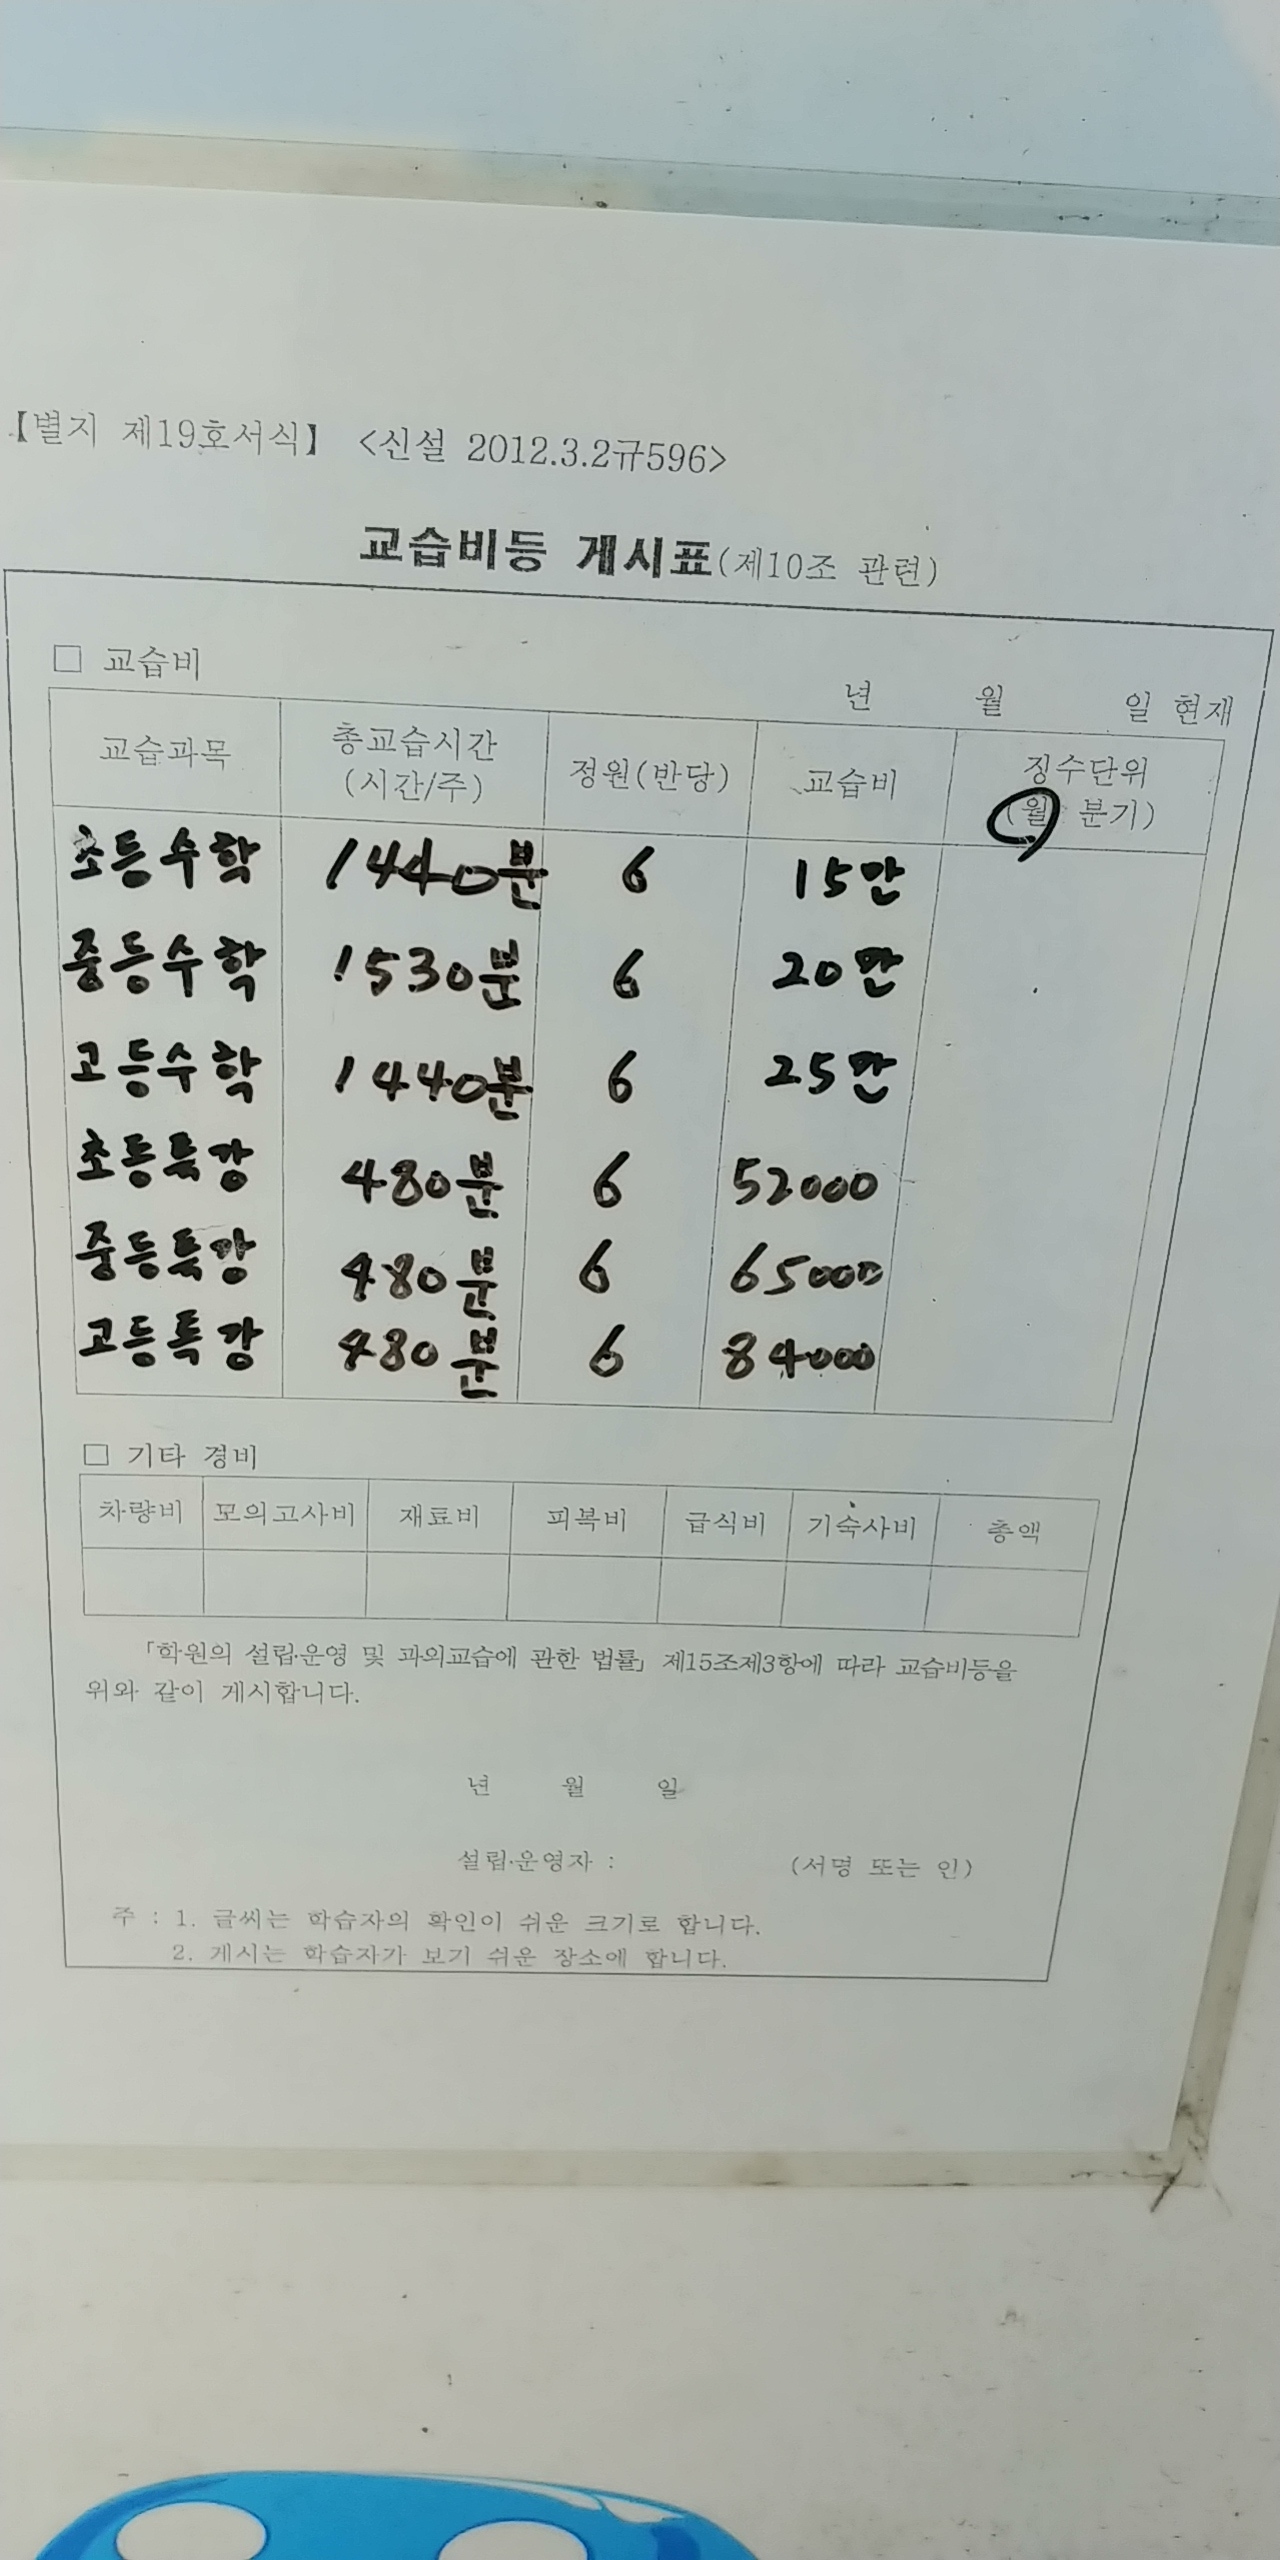 【별지 제19호서식】 <신설 2012.3.2규596>
교습비등 게시표(제10조 관련)
□ 교습비
년 월 일 현재
교습과목 총교습시간 (시간/주) 정원(반당) 교습비 징수단위 (월 분기)
초등수학 1440분 6 15만
중등수학 1530분 6 20만
고등수학 1440분 6 25만
초등특강 480분 6 52000
중등특강 480분 6 65000
고등특강 480분 6 84000
□ 기타 경비
차량비 모의고사비 재료비 피복비 급식비 기숙사비 총액
「학원의 설립·운영 및 과외교습에 관한 법률」 제15조제3항에 따라 교습비등을
위와 같이 게시합니다.
년 월 일
설립·운영자 : (서명 또는 인)
주 : 1. 글씨는 학습자의 확인이 쉬운 크기로 합니다.
2. 게시는 학습자가 보기 쉬운 장소에 합니다.